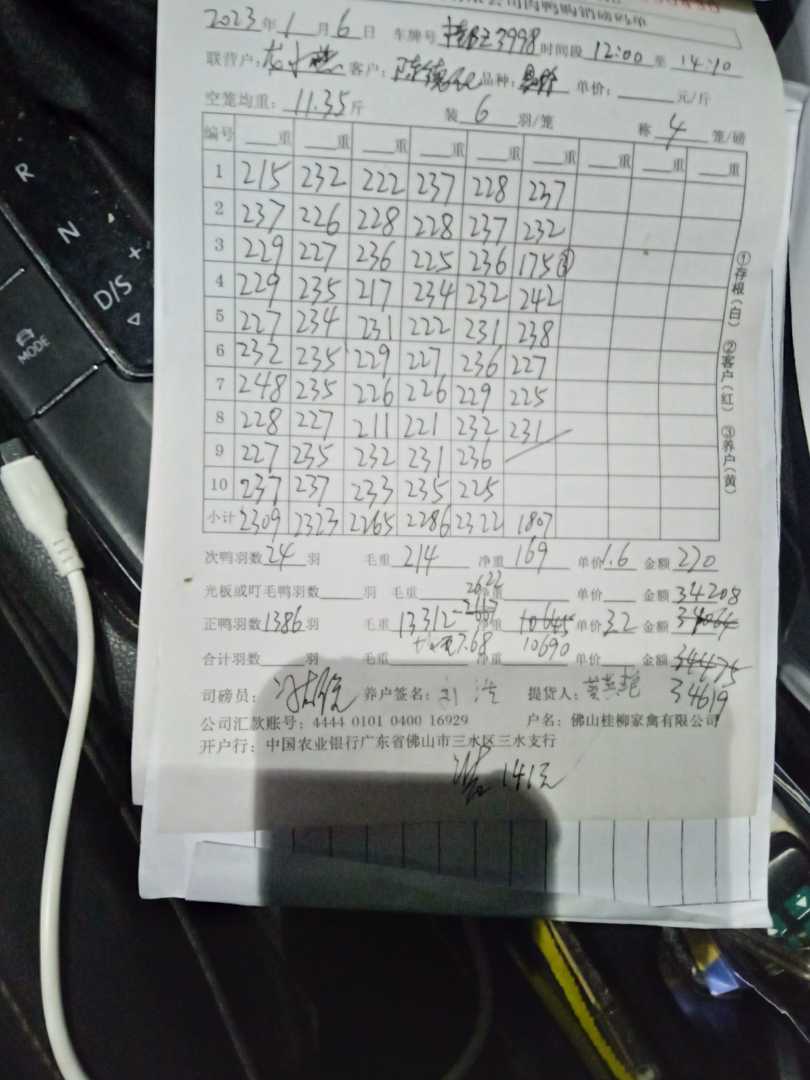 公司肉鸭购销磅码单
2023年1月6日 车牌号 3998 时间段 12:00 至 14:10
联营户: 客户: 陈德 品种: 单价: 元/斤
空笼均重: 11.35斤 装 6 羽/笼 称 4 笼/磅
编号 重 重 重 重 重 重 重 重 重
1 215 232 222 237 228 237
2 237 226 228 228 237 232
3 229 227 236 225 236 175③
4 229 235 217 234 232 242
5 227 234 231 222 231 238
6 232 235 229 227 236 227
7 248 235 226 226 229 225
8 228 227 211 221 232 231
9 227 235 232 231 236
10 237 237 233 235 225
小计 2309 2323 2265 2286 2322 1807
次鸭羽数 24 羽 毛重 214 净重 169 单价 1.6 金额 270
光板或叮毛鸭羽数 羽 毛重 净重 单价 金额 34208
2622
正鸭羽数 1386 羽 毛重 13312 净重 10645 单价 3.2 金额 34064
7.68 10690
合计羽数 羽 毛重 净重 单价 金额 34475
司磅员: 养户签名: 刘浩 提货人: 34619
公司汇款账号: 4444 0101 0400 16929 户名: 佛山桂柳家禽有限公司
开户行: 中国农业银行广东省佛山市三水区三水支行
141元
①存根(白) ②客户(红) ③养户(黄)
R
N
D/S
+
MODE